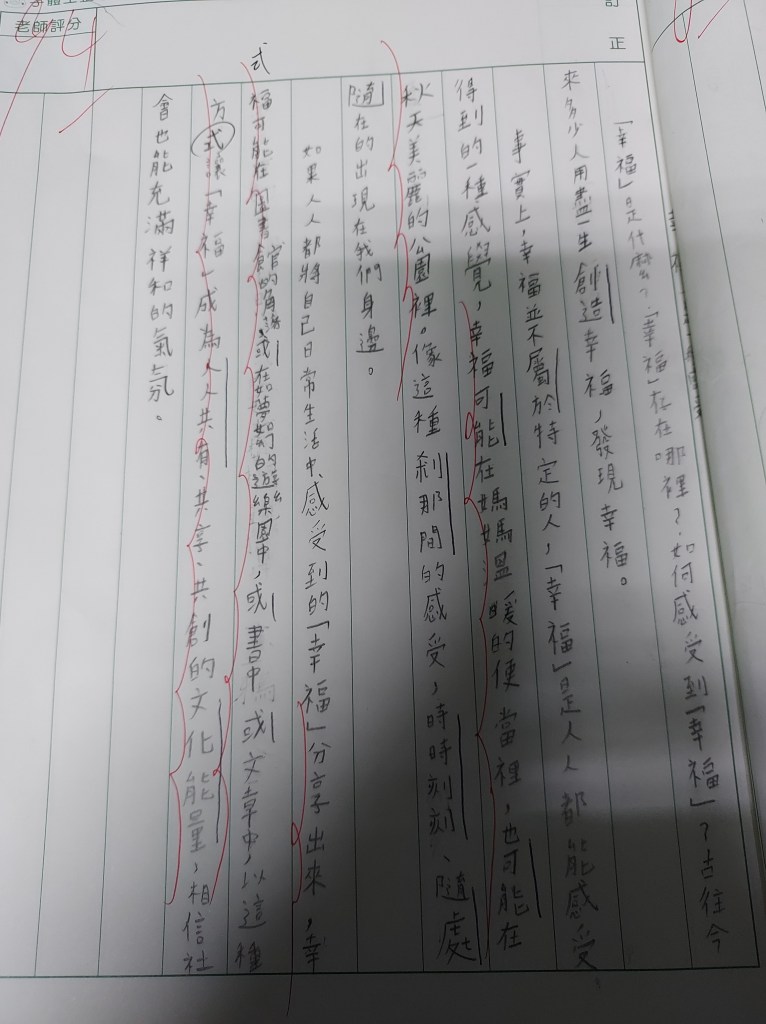 訂正
老師評分
94
「幸福」是什麼？「幸福」存在哪裡？如何感受到「幸福」？古往今
來多少人用盡一生創造幸福，發現幸福。
事實上，幸福並不屬於特定的人，「幸福」是人人都能感受
得到的一種感覺，幸福可能在媽媽溫暖的便當裡，也可能在
秋天美麗的公園裡。像這種剎那間的感受，時時刻刻、隨處
隨在的出現在我們身邊。
如果人人都將自己日常生活中、感受到的「幸福」分享出來，幸
福可能在圖書館的角落，或在如夢如幻的遊樂園中，或書中或文章中，以這種
式
方式讓「幸福」成為人人共有、共享、共創的文化能量，相信社
會也能充滿祥和的氣氛。